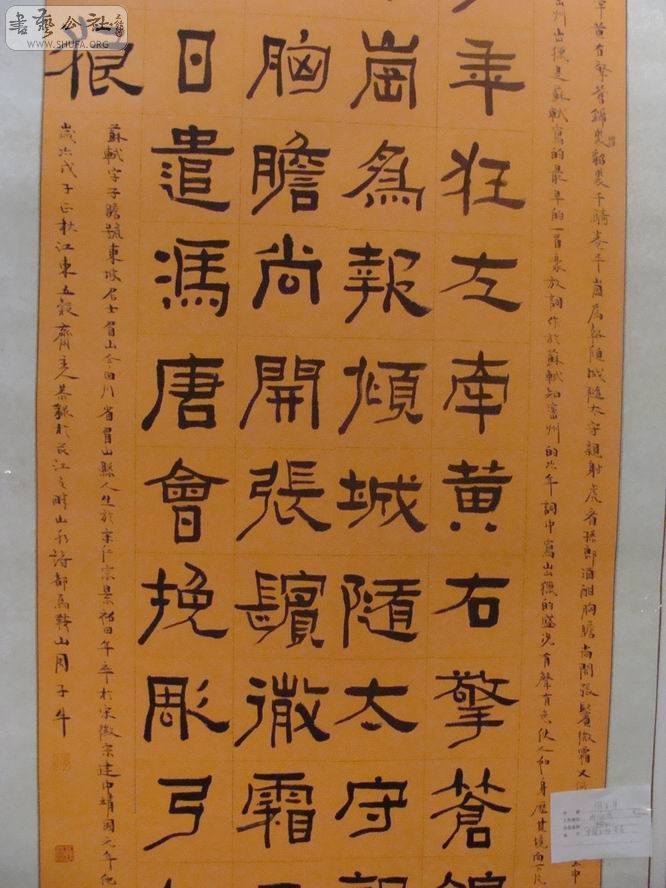 黄右擎蒼錦裘貂裘千騎卷平崗為報傾城隨太守親射虎看孫郎酒酣胸膽尚開張鬢微霜又
州出獵是蘇軾寫的最早的一首豪放詞作於蘇軾知密州的次年詞中寫出獵的盛況有聲有色使人如身歷其境而下片
年狂左牽黄右擎蒼錦
崗為報傾城隨太守親
胸膽尚開張鬢微霜
日遣馮唐會挽彫弓
狼
蘇軾字子瞻號東坡居士眉山今四川省眉山縣人生於宋仁宗景祐四年卒於宋徽宗建中靖國元年他
歲次戊子正秋江東五穀齋主人恭録於長江之畔山水詩都馬鞍山周子牛
書藝公社
WWW.SHUFA.ORG